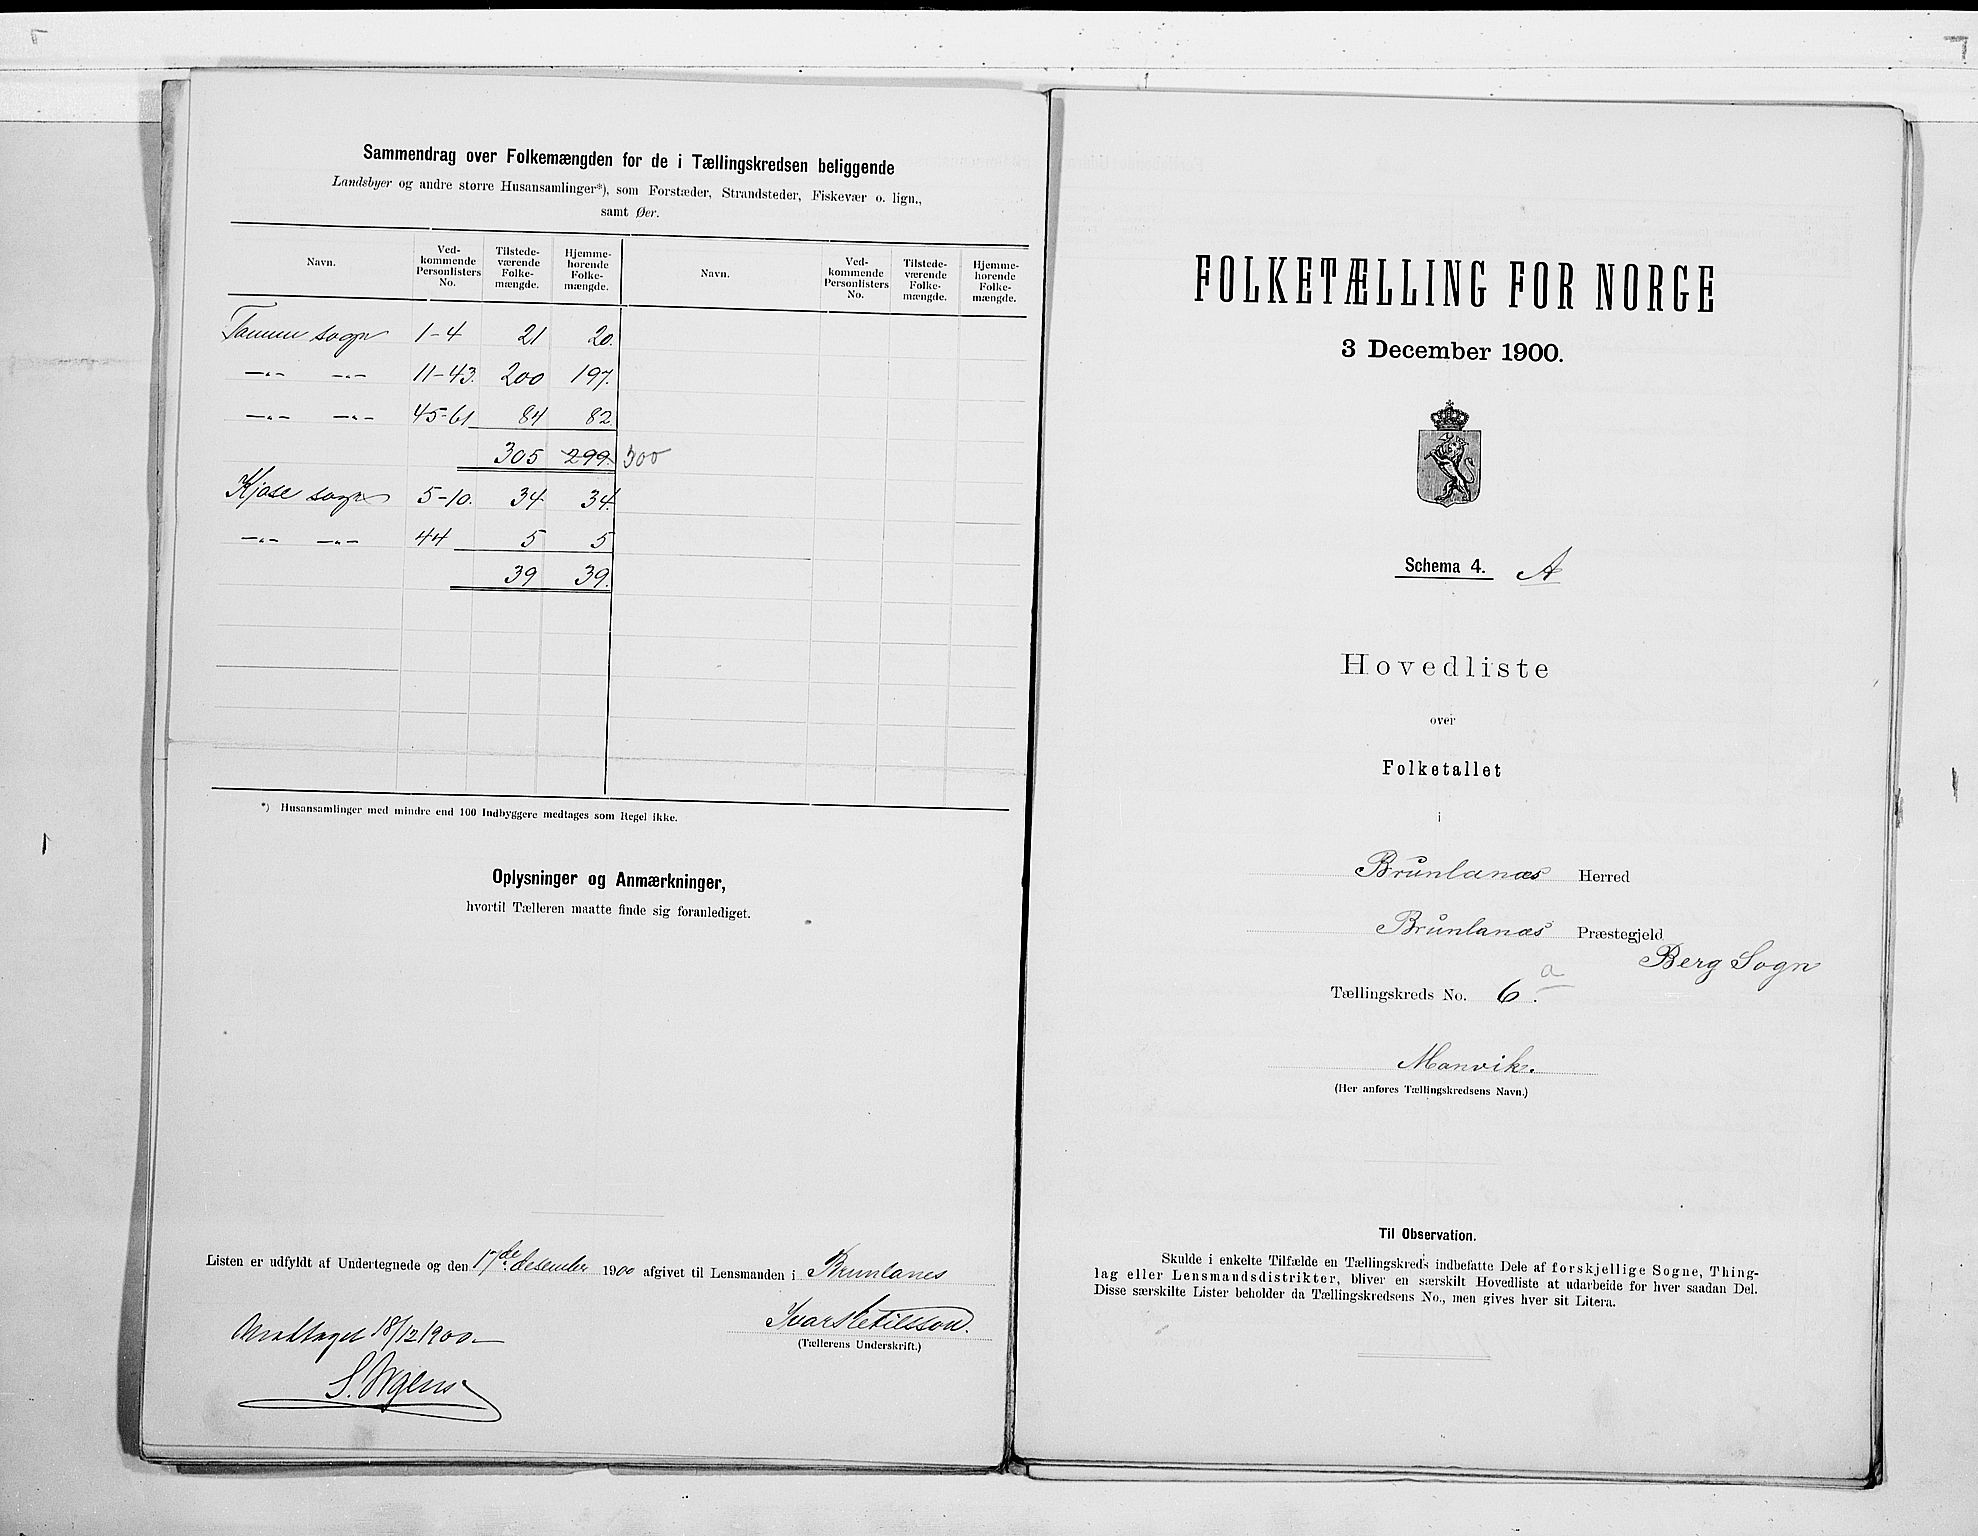 Sammendrag over Folkemængden for de i Tællingskredsen beliggende
Landsbyer og andre større Husansamlinger*), som Forstæder, Strandsteder, Fiskevær o. lign.,
samt Øer.
Navn. Ved-kommende Personlisters No. Tilstede-værende Folke-mængde. Hjemme-hørende Folke-mængde. Navn. Ved-kommende Personlisters No. Tilstede-værende Folke-mængde. Hjemme-hørende Folke-mængde.
Tanum sogn 1-4 21 20.
—"— —"— 11-43. 200 197.
—"— —"— 45-61 84 82.
305 299. 300
Kjose sogn 5-10. 34 34.
—"— —"— 44 5 5
39 39.
*) Husansamlinger med mindre end 100 Indbyggere medtages som Regel ikke.
Oplysninger og Anmærkninger,
hvortil Tælleren maatte finde sig foranlediget.
Listen er udfyldt af Undertegnede og den 17de desember 1900 afgivet til Lensmanden i Brunlanes
Ivar Ketilsson.
(Tællerens Underskrift.)
Modtaget 18/12 1900
FOLKETÆLLING FOR NORGE
3 December 1900.
Schema 4. A
Hovedliste
over
Folketallet
i
Brunlanæs Herred
Brunlanæs Præstegjeld
Berg Sogn
Tællingskreds No. 6. a
Manvik.
(Her anføres Tællingskredsens Navn.)
Til Observation.
Skulde i enkelte Tilfælde en Tællingskreds indbefatte Dele af forskjellige Sogne, Thing-
lag eller Lensmandsdistrikter, bliver en særskilt Hovedliste at udarbeide for hver saadan Del.
Disse særskilte Lister beholder da Tællingskredsens No., men gives hver sit Litera.